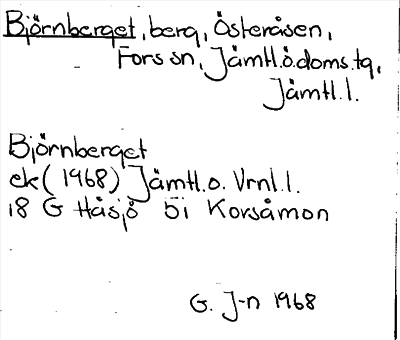 Björnberget, berg, Österåsen,
Fors sn, Jämtl.ö.doms.tg,
Jämtl.l.
Björnberget
ek (1968) Jämtl.o. Vrnl.l.
18 G Håsjö 5i Korsåmon
G. J-n 1968